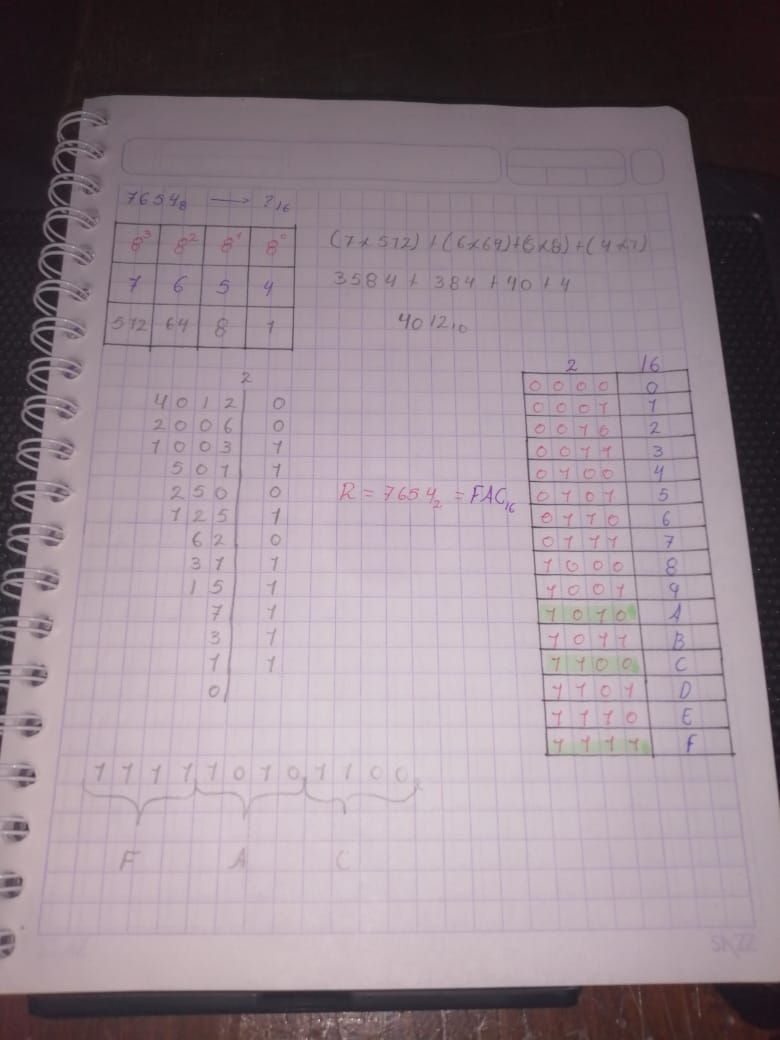 7654₈ → ?₁₆
8³ 8² 8¹ 8⁰
7 6 5 4
512 64 8 1
(7x512)+(6x64)+(5x8)+(4x1)
3584 + 384 + 40 + 4
4012₁₀
2
4012 0
2006 0
1003 1
501 1
250 0
125 1
62 0
31 1
15 1
7 1
3 1
1 1
0
R = 7654₂ = FAC₁₆
2 16
0000 0
0001 1
0010 2
0011 3
0100 4
0101 5
0110 6
0111 7
1000 8
1001 9
1010 A
1011 B
1100 C
1101 D
1110 E
1111 F
1111 1010 1100₂
F A C